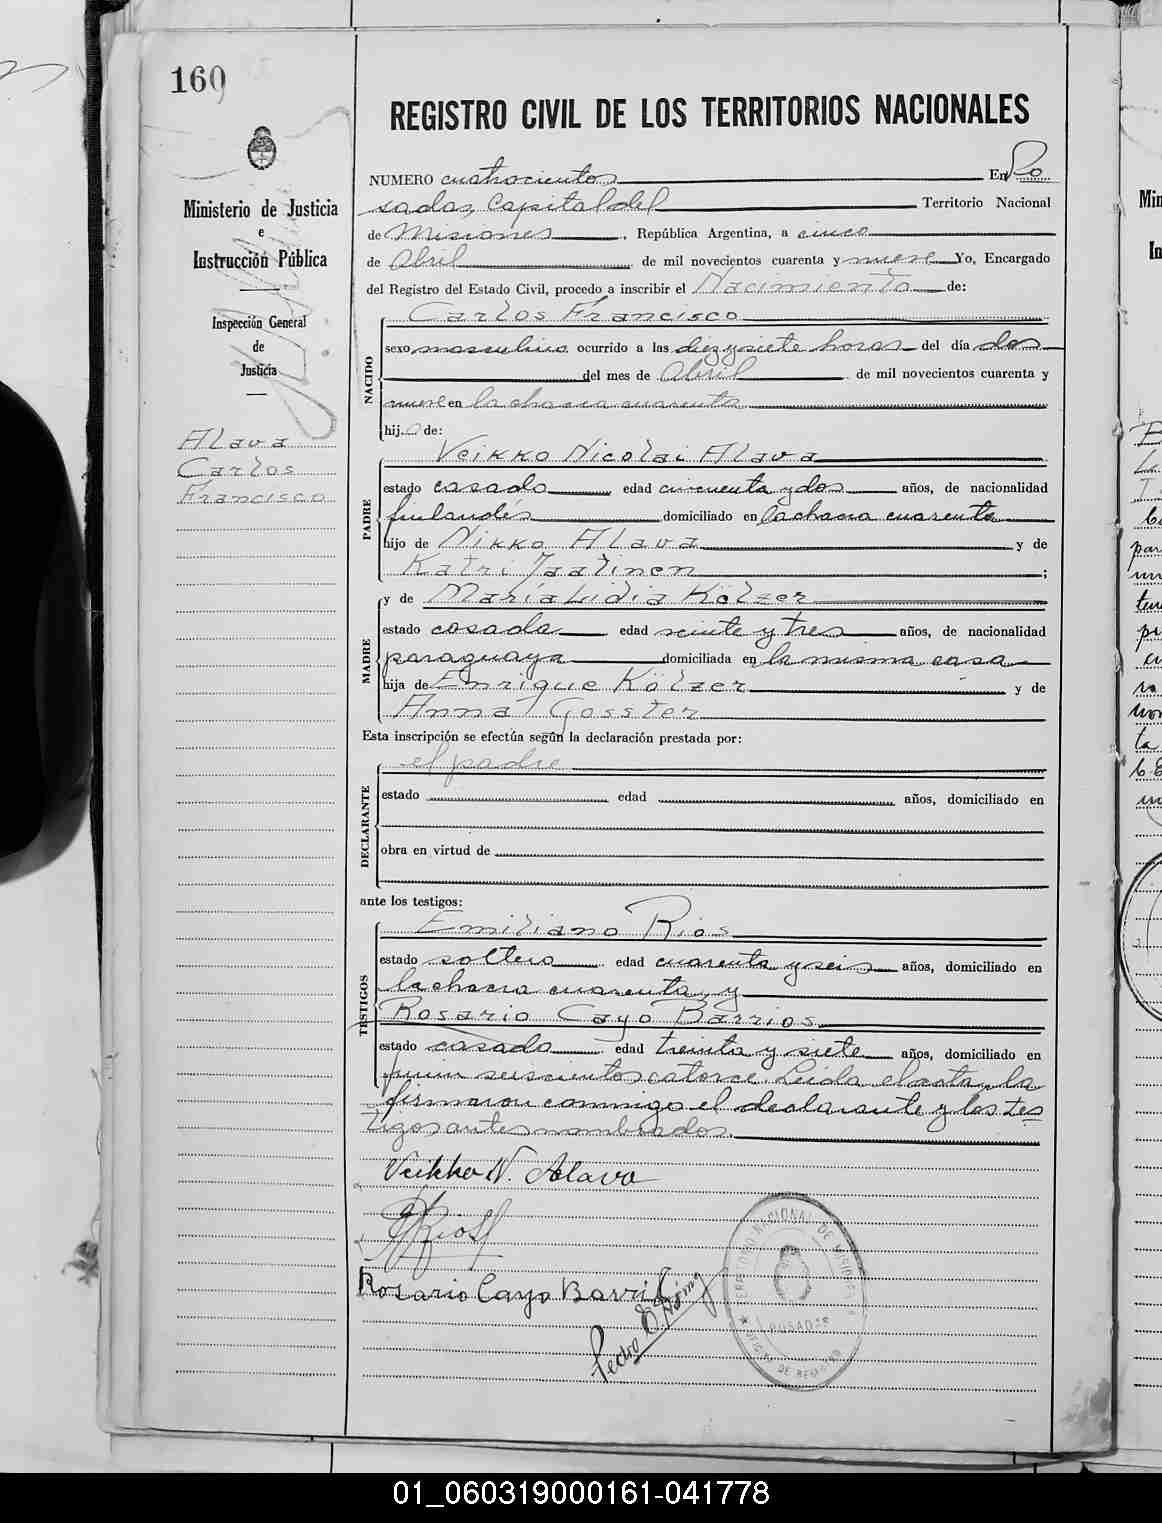 160
REGISTRO CIVIL DE LOS TERRITORIOS NACIONALES
Ministerio de Justicia
e
Instrucción Pública
Inspección General
de
Justicia
Alava
Carlos
Francisco
NUMERO cuatrocientos En Po
sadas, Capital del Territorio Nacional
de Misiones, República Argentina, a cinco
de Abril de mil novecientos cuarenta y nueve Yo, Encargado
del Registro del Estado Civil, procedo a inscribir el Nacimiento de:
NACIDO
Carlos Francisco
sexo masculino ocurrido a las diez y siete horas del día dos
del mes de Abril de mil novecientos cuarenta y
nueve en la chacra cuarenta
hijo de:
PADRE
Veikko Nicolai Alava
estado casado edad cincuenta y dos años, de nacionalidad
finlandés domiciliado en la chacra cuarenta
hijo de Nikko Alava y de
Katri Jaatinen;
MADRE
y de María Lidia Kölzer
estado casada edad veinte y tres años, de nacionalidad
paraguaya domiciliada en la misma casa
hija de Enrique Kölzer y de
Anna Gosster
Esta inscripción se efectúa según la declaración prestada por:
DECLARANTE
el padre
estado edad años, domiciliado en
obra en virtud de
ante los testigos:
TESTIGOS
Emiliano Rios
estado soltero edad cuarenta y seis años, domiciliado en
la chacra cuarenta y
Rosario Cayo Barrios
estado casado edad treinta y siete años, domiciliado en
seiscientos catorce. Leida el acta, la
firmaron conmigo el declarante y los tes
tigos antes nombrados.
Veikko N. Alava
Rios
Rosario Cayo Barri
Pedro E.
TERRITORIO NACIONAL DE MISIONES
POSADAS
01_060319000161-041778